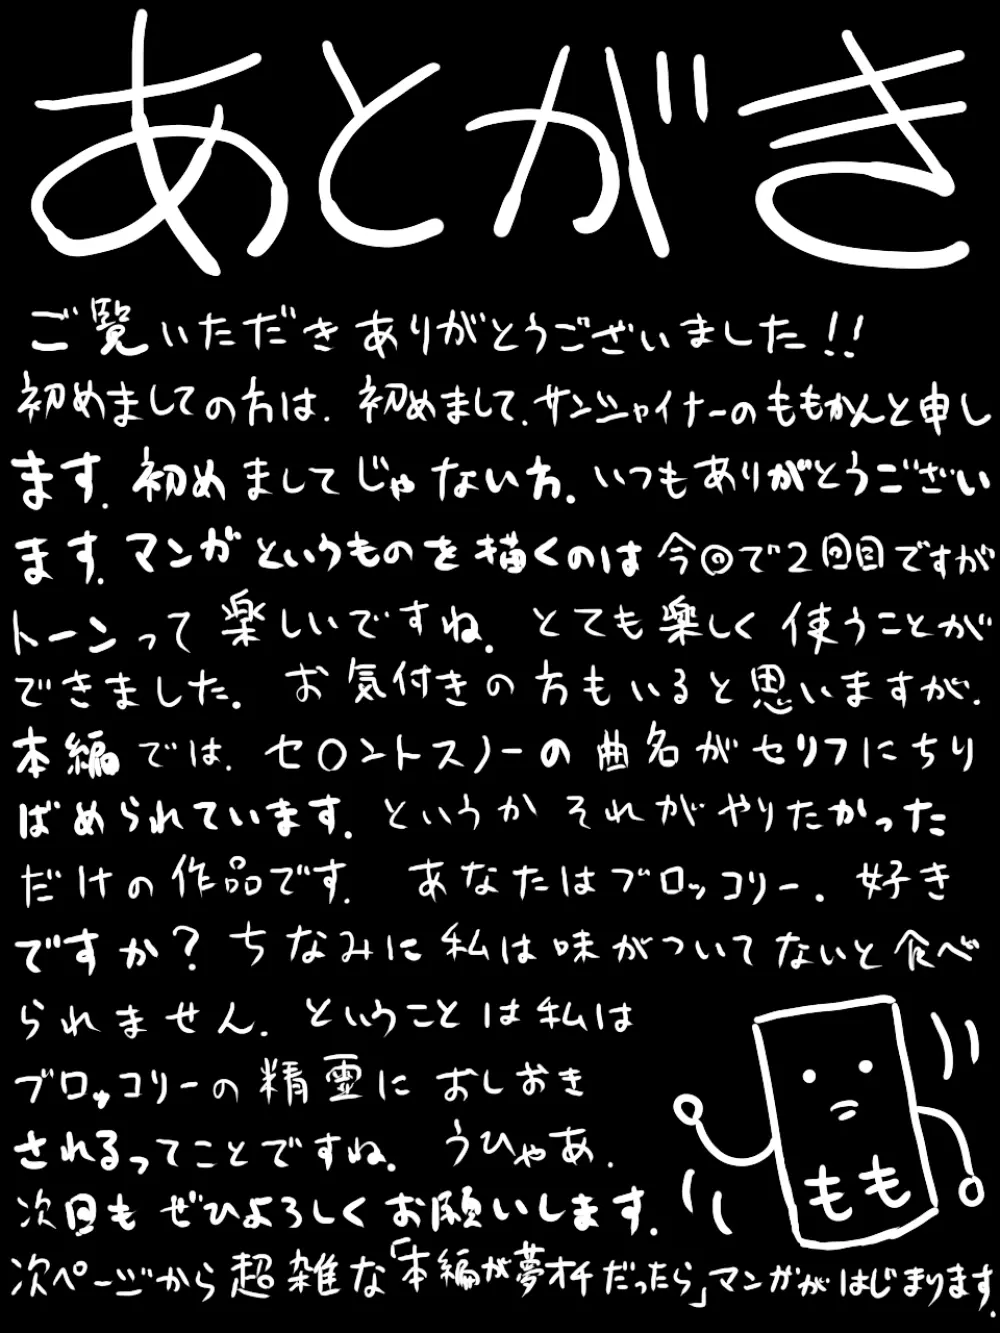 あとがき
ご覧いただきありがとうございました!!
初めましての方は、初めまして、サンシャイナーのももかんと申し
ます。初めましてじゃない方、いつもありがとうござい
ます。マンガというものを描くのは今回で2回目ですが
トーンって楽しいですね。とても楽しく使うことが
できました。お気付きの方もいると思いますが、
本編では、セ○ントスノーの曲名がセリフにちり
ばめられています。というかそれがやりたかった
だけの作品です。あなたはブロッコリー、好き
ですか?ちなみに私は味がついてないと食べ
られません。ということは私は
ブロッコリーの精霊におしおき
されるってことですね。うひゃあ。
次回もぜひよろしくお願いします。
次ページから超雑な「本編が夢オチだったら」マンガがはじまります。
もも